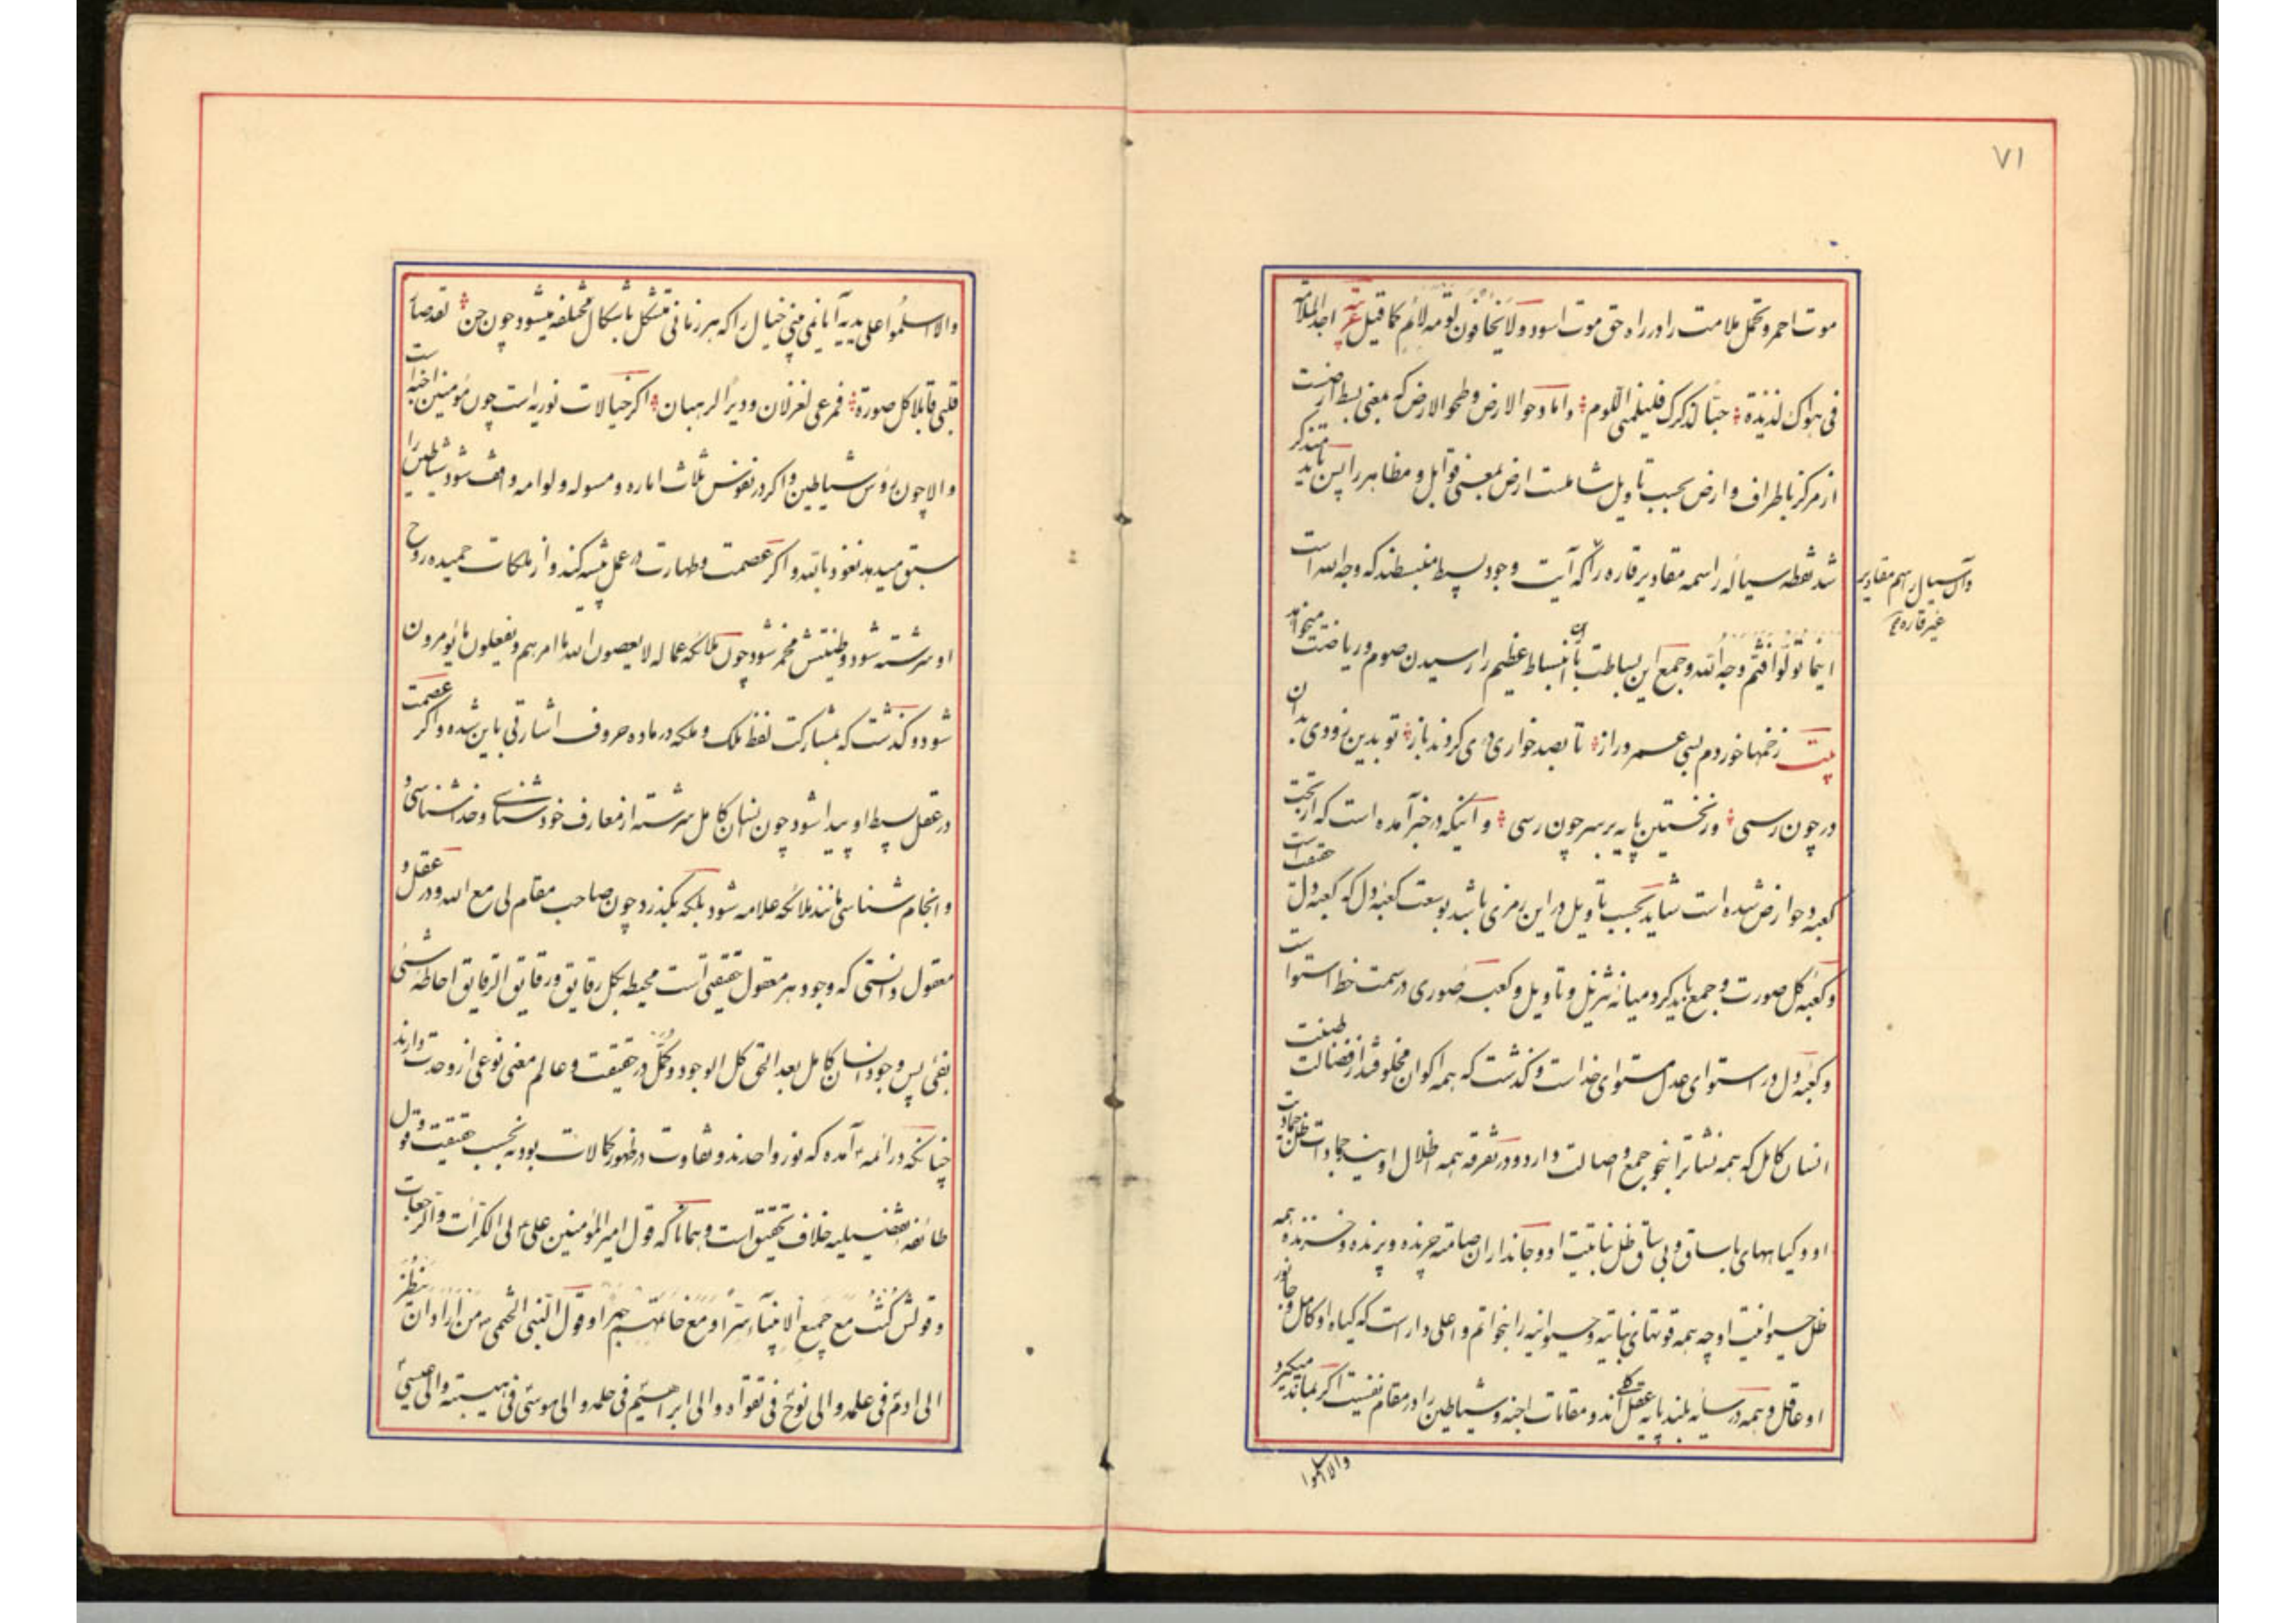 ۷۱
موت احمر و تحمل ملامت را در راه حق موت اسود و لا یخافون لومة لائم کما قیل عربیه اجد الملامة
فی هواک لذیذة حبا لذکرک فلیلمنی اللوم و اما دحو الارض و طحو الارض که بمعنی بسط ارضست
از مرکز باطراف و ارض بحسب تاویل شاملست ارض بمعنی قوابل و مظاهر را پس باید متذکر
شد نقطه سیاله راسمه مقادیر قاره را که آیت وجود بسیط منبسطند که وجه الله است
وآن سیال راسم مقادیر
غیر قاره
اینما تولوا فثم وجه الله و جمع این بساطت با آن انبساط عظیم را رسیدن صوم و ریاضت میخواهد
بیت زخمها خوردم بسی عمر دراز تا بصد خواری دری کردند باز تو بدین زودی بدان
در چون رسی وز نخستین پایه بر سر چون رسی و آنکه در خبر آمده است که از تحت
کعبه دحو ارض شده است شاید بحسب تاویل در این رمزی باشد بوسعت کعبه دل که کعبه دل حقیقت است
و کعبه گل صورت و جمع باید کرد میانه تنزیل و تاویل و کعبه صوری در سمت خط استوا است
و کعبه دل در استوای عدل مستوای خدا است و گذشت که همه اکوان مخلوقند از فضالت طینت
انسان کامل که همه نشاترا بنحو جمع و اصالت دارد و در تفرقه همه اظلال اویند جمادات ظل جمادیت
او و گیاههای با ساق و بی ساق ظل نباتیت او و جانداران صامته چرنده و پرنده و خزنده همه
ظل حیوانیت او چه همه قوتهای نباتیه و حیوانیه را بنحو اتم و اعلی دارا است که گیاه او کامل و جانور
او عاقل و همه در سایه بلند پایه عقل کلی اند و مقامات اجنه و شیاطین را در مقام نفسیت اگر بماند میگیرد
والا اسلموا
والا اسلموا علی یدیه آیا نمی بینی خیال را که هر زمانی متشکل باشکال مختلفه میشود چون جن لقد صار
قلبی قابلا کل صورة فمرعی لغزلان و دیرا لرهبان اگر خیالات نوریه است چون مؤمنین اجنه است
والا چون رؤس شیاطین و اگر در نفوس ثلاث اماره و مسوله و لوامه واقف شود شیاطین را
سبق میدهد نعوذ بالله و اگر عصمت و طهارت در عمل پیشه کند و از ملکات حمیده روح
او سرشته شود و طینتش مخمر شود چون ملائکه عماله لا یعصون الله ما امرهم و یفعلون ما یؤمرون
شود و گذشت که بمشارکت لفظ ملک و ملکه در ماده حروف اشارتی باین شده و اگر عصمت
در عقل بسیط او پیدا شود چون انسان کامل سرشته از معارف خودشناسی و خداشناسی و
و انجام شناسی مانند ملائکه علامه شود بلکه بگذرد چون صاحب مقام لی مع الله و در عقل و
معقول دانستی که وجود هر معقول حقیقتی است محیطه بکل رقایق و رقایق الرقایق احاطه شیئی
بفیئی پس وجود انسان کامل بعد الحق کل الوجود و کل در حقیقت و عالم معنی نوعی از وحدت دارند
چنانکه در ائمه ع آمده که نور واحدند و تفاوت در ظهور کمالات بوده نه بحسب حقیقت و قول
طائفه تفضیلیه خلاف تحقیق است و همانا که قول امیر المؤمنین علی ع لی الکرات والرجعات
و قولش کنت مع جمیع الانبیاء سرا و مع خاتمهم جهرا و قول النبی الختمی ص من اراد ان ینظر
الی ادم فی علمه و الی نوح فی تقواه و الی ابراهیم فی حلمه و الی موسی فی هیبته و الی عیسی